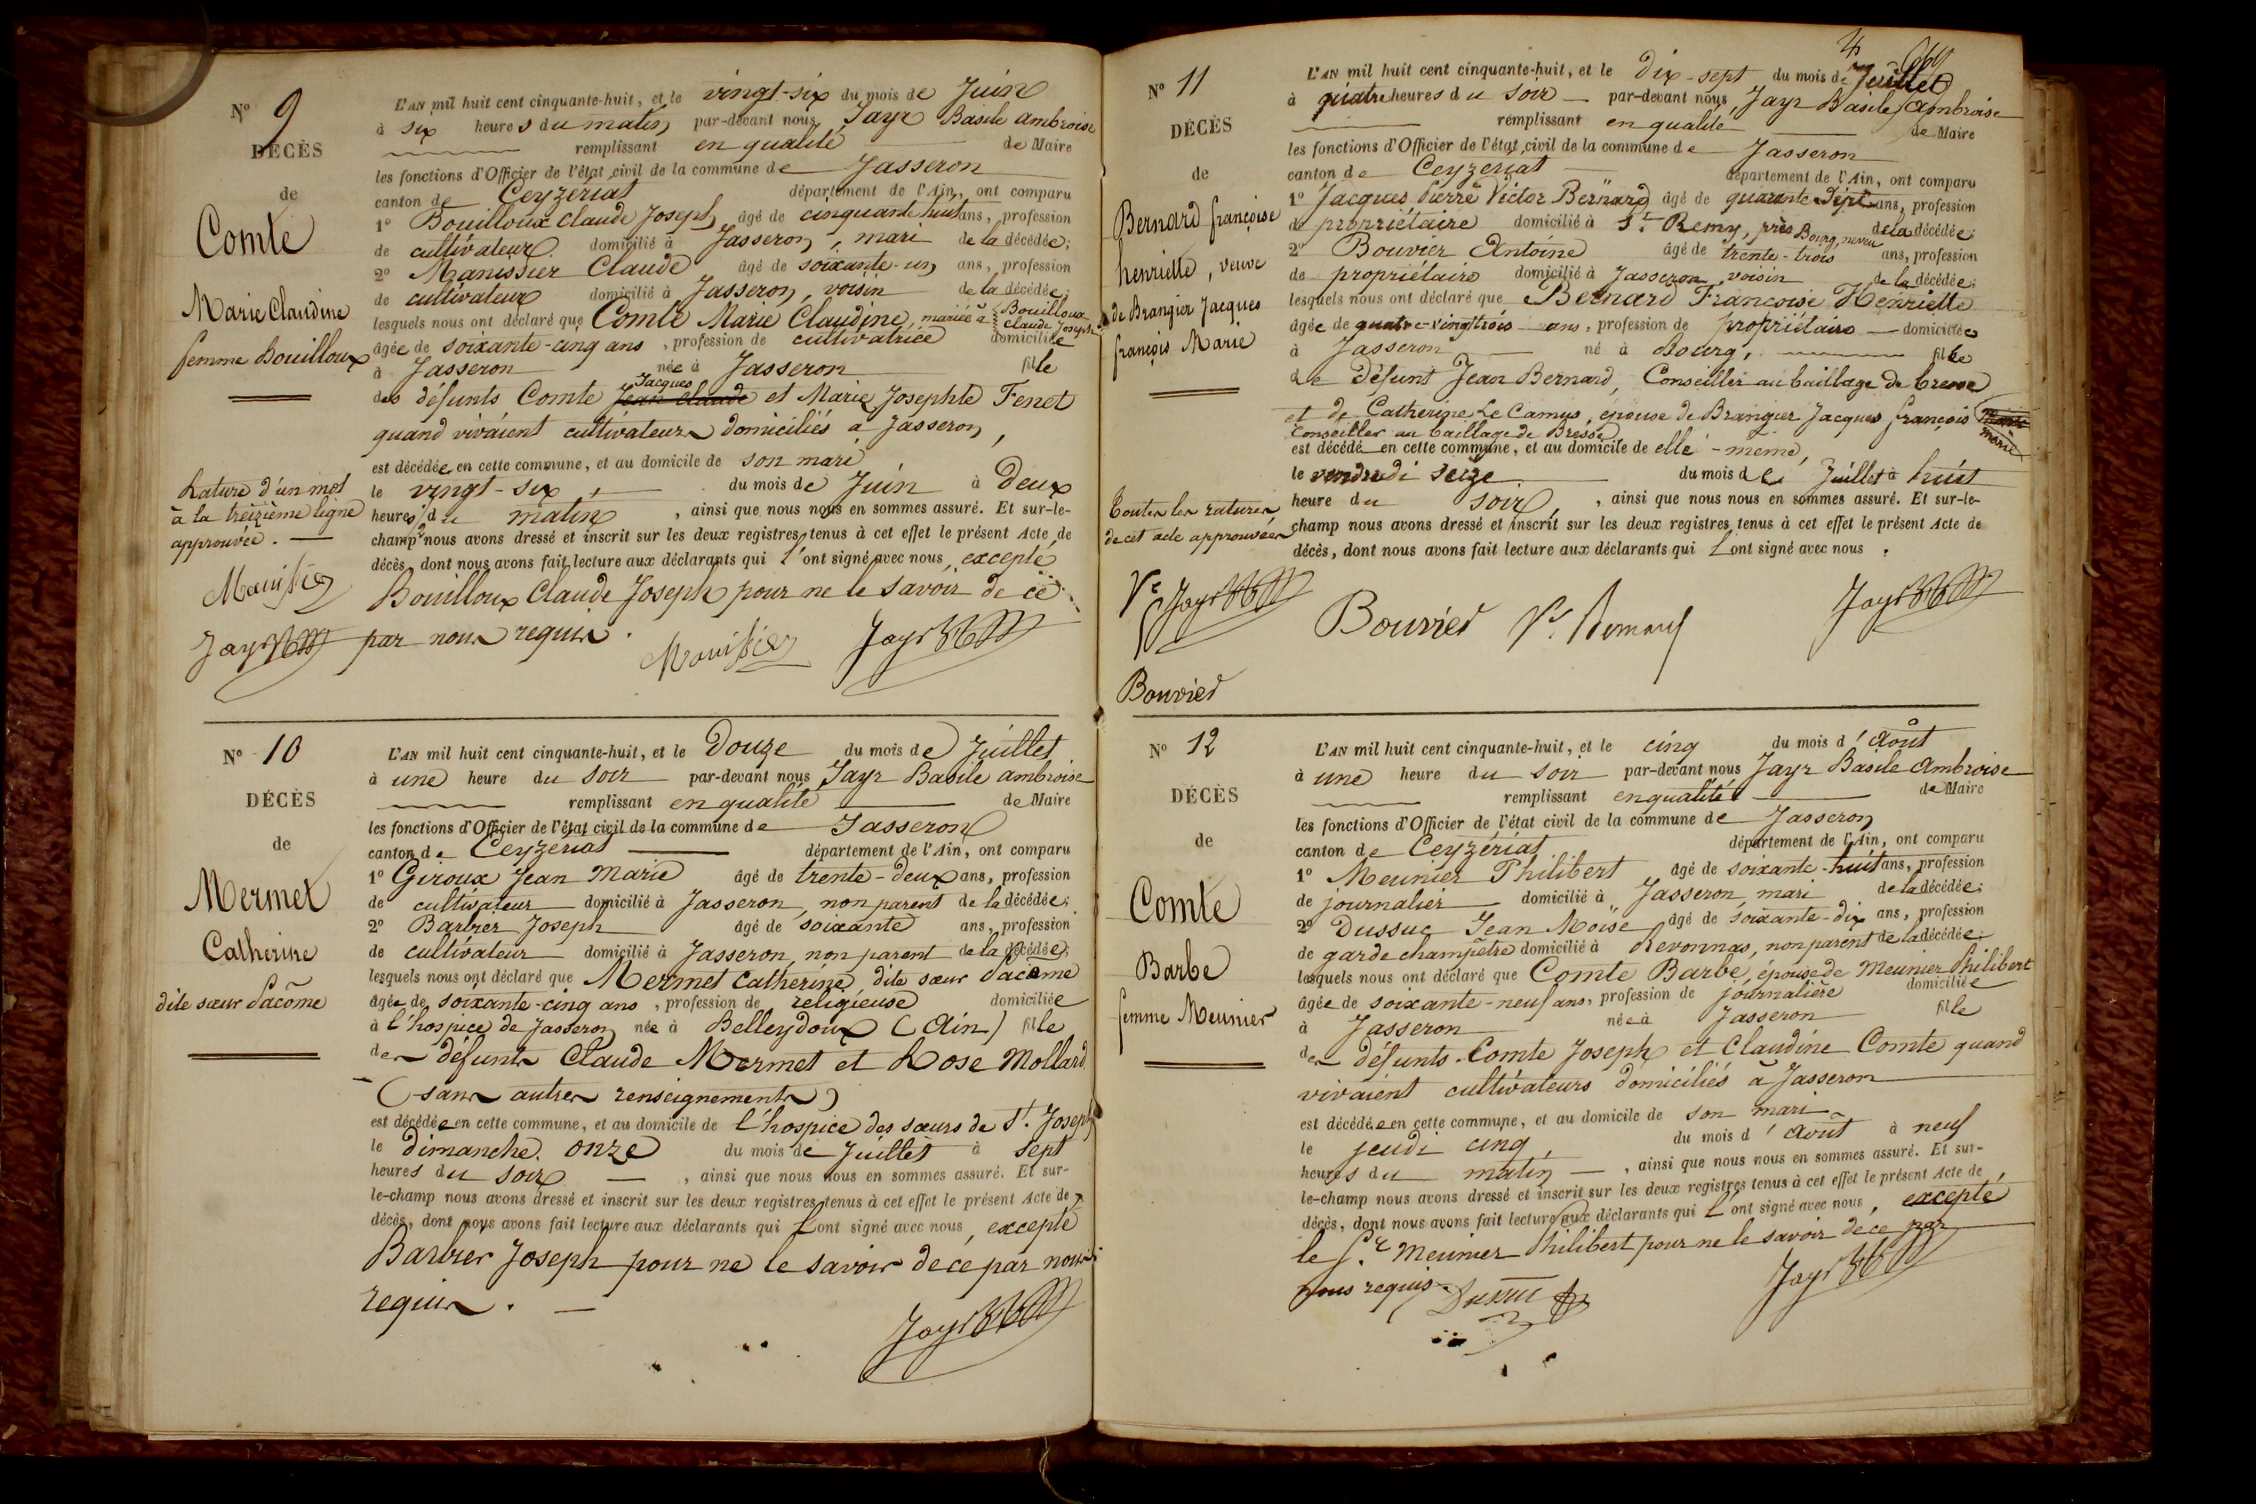 N° 9
DÉCÈS
de
Comte
Marie Claudine
femme Bouilloux
Rature d'un mot
à la treizième ligne
approuvée. —
L'AN mil huit cent cinquante-huit, et le vingt-six du mois de Juin
à six heures du matin par-devant nous, Jayr Basile ambroise
remplissant en qualité de Maire
les fonctions d'Officier de l'état civil de la commune de Jasseron
canton de Ceyzériat département de l'Ain, ont comparu
1° Bouilloux Claude Joseph, âgé de cinquante huit ans, profession
de cultivateur domicilié à Jasseron, mari de la décédée;
2° Manissier Claude âgé de soixante-un ans, profession
de cultivateur domicilié à Jasseron, voisin de la décédée;
lesquels nous ont déclaré que Comte Marie Claudine, mariée à Bouilloux Claude Joseph
âgée de soixante-cinq ans, profession de cultivatrice domiciliée
à Jasseron née à Jasseron fille
des défunts Comte Jean Claude Jacques et Marie Josephte Fenet
quand vivaient cultivateurs domiciliés à Jasseron,
est décédée en cette commune, et au domicile de son mari
le vingt-six du mois de Juin à Deux
heures du matin, ainsi que nous nous en sommes assuré. Et sur-le-
champ nous avons dressé et inscrit sur les deux registres tenus à cet effet le présent Acte de
décès, dont nous avons fait lecture aux déclarants qui l'ont signé avec nous, excepté
Bouilloux Claude Joseph pour ne le savoir de ce
par nous requis.
Manissier Jayr
N° 10
DÉCÈS
de
Mermet
Catherine
dite sœur Pacôme
L'AN mil huit cent cinquante-huit, et le Douze du mois de Juillet
à une heure du soir par-devant nous Jayr Basile ambroise
remplissant en qualité de Maire
les fonctions d'Officier de l'état civil de la commune de Jasseron
canton de Ceyzériat département de l'Ain, ont comparu
1° Giroux Jean Marie âgé de trente-deux ans, profession
de cultivateur domicilié à Jasseron, non parent de la décédée;
2° Barbier Joseph âgé de soixante ans, profession
de cultivateur domicilié à Jasseron, non parent de la décédée;
lesquels nous ont déclaré que Mermet Catherine, dite sœur Pacôme
âgée de soixante-cinq ans, profession de religieuse domiciliée
à l'hospice de Jasseron née à Belleydoux (Ain) fille
des défunts Claude Mermet et Rose Mollard
(sans autres renseignements)
est décédée en cette commune, et au domicile de l'hospice des sœurs de St. Joseph
le dimanche onze du mois de Juillet à sept
heures du soir, ainsi que nous nous en sommes assuré. Et sur-
le-champ nous avons dressé et inscrit sur les deux registres tenus à cet effet le présent Acte de
décès, dont nous avons fait lecture aux déclarants qui l'ont signé avec nous, excepté
Barbier Joseph pour ne le savoir de ce par nous
requis. —
Jayr
N° 11
DÉCÈS
de
Bernard françoise
henriette, veuve
de Brangier Jacques
françois Marie
Toutes les ratures
de cet acte approuvées
Bouvier
L'AN mil huit cent cinquante-huit, et le Dix-sept du mois de Juillet
à quatre heures du soir par-devant nous, Jayr Basile Ambroise
remplissant en qualité de Maire
les fonctions d'Officier de l'état civil de la commune de Jasseron
canton de Ceyzériat département de l'Ain, ont comparu
1° Jacques Pierre Victor Bernard âgé de quarante sept ans, profession
de propriétaire domicilié à St. Remy, près Bourg, neveu de la décédée;
2° Bouvier Antoine âgé de trente-trois ans, profession
de propriétaire domicilié à Jasseron, voisin de la décédée;
lesquels nous ont déclaré que Bernard Françoise Henriette
âgée de quatre-vingt trois ans, profession de propriétaire domiciliée
à Jasseron né à Bourg, fille
de défunt Jean Bernard, Conseiller au bailliage de bresse
et de Catherine Le Camus, épouse de Brangier Jacques françois Marie
Conseiller au bailliage de Bresse
est décédé en cette commune, et au domicile de elle-même,
le vendredi seize du mois de Juillet à huit
heure du soir, ainsi que nous nous en sommes assuré. Et sur-le-
champ nous avons dressé et inscrit sur les deux registres tenus à cet effet le présent Acte de
décès, dont nous avons fait lecture aux déclarants qui l'ont signé avec nous.
Bouvier Vr. Bernard Jayr
N° 12
DÉCÈS
de
Comte
Barbe
femme Meunier
L'AN mil huit cent cinquante-huit, et le cinq du mois d'Août
à une heure du soir par-devant nous Jayr Basile Ambroise
remplissant en qualité de Maire
les fonctions d'Officier de l'état civil de la commune de Jasseron
canton de Ceyzériat département de l'Ain, ont comparu
1° Meunier Philibert âgé de soixante-huit ans, profession
de journalier domicilié à Jasseron, mari de la décédée;
2° Dussuc Jean Moïse âgé de soixante-dix ans, profession
de garde champêtre domicilié à Revonnas, non parent de la décédée;
lesquels nous ont déclaré que Comte Barbe, épouse de Meunier Philibert
âgée de soixante-neuf ans, profession de journalière domiciliée
à Jasseron née à Jasseron fille
des défunts Comte Joseph et Claudine Comte quand
vivaient cultivateurs domiciliés à Jasseron
est décédée en cette commune, et au domicile de son mari
le jeudi cinq du mois d'Août à neuf
heures du matin, ainsi que nous nous en sommes assuré. Et sur-
le-champ nous avons dressé et inscrit sur les deux registres tenus à cet effet le présent Acte de
décès, dont nous avons fait lecture aux déclarants qui l'ont signé avec nous, excepté
le Sr. Meunier Philibert pour ne le savoir de ce par
nous requis. Dussuc Jayr